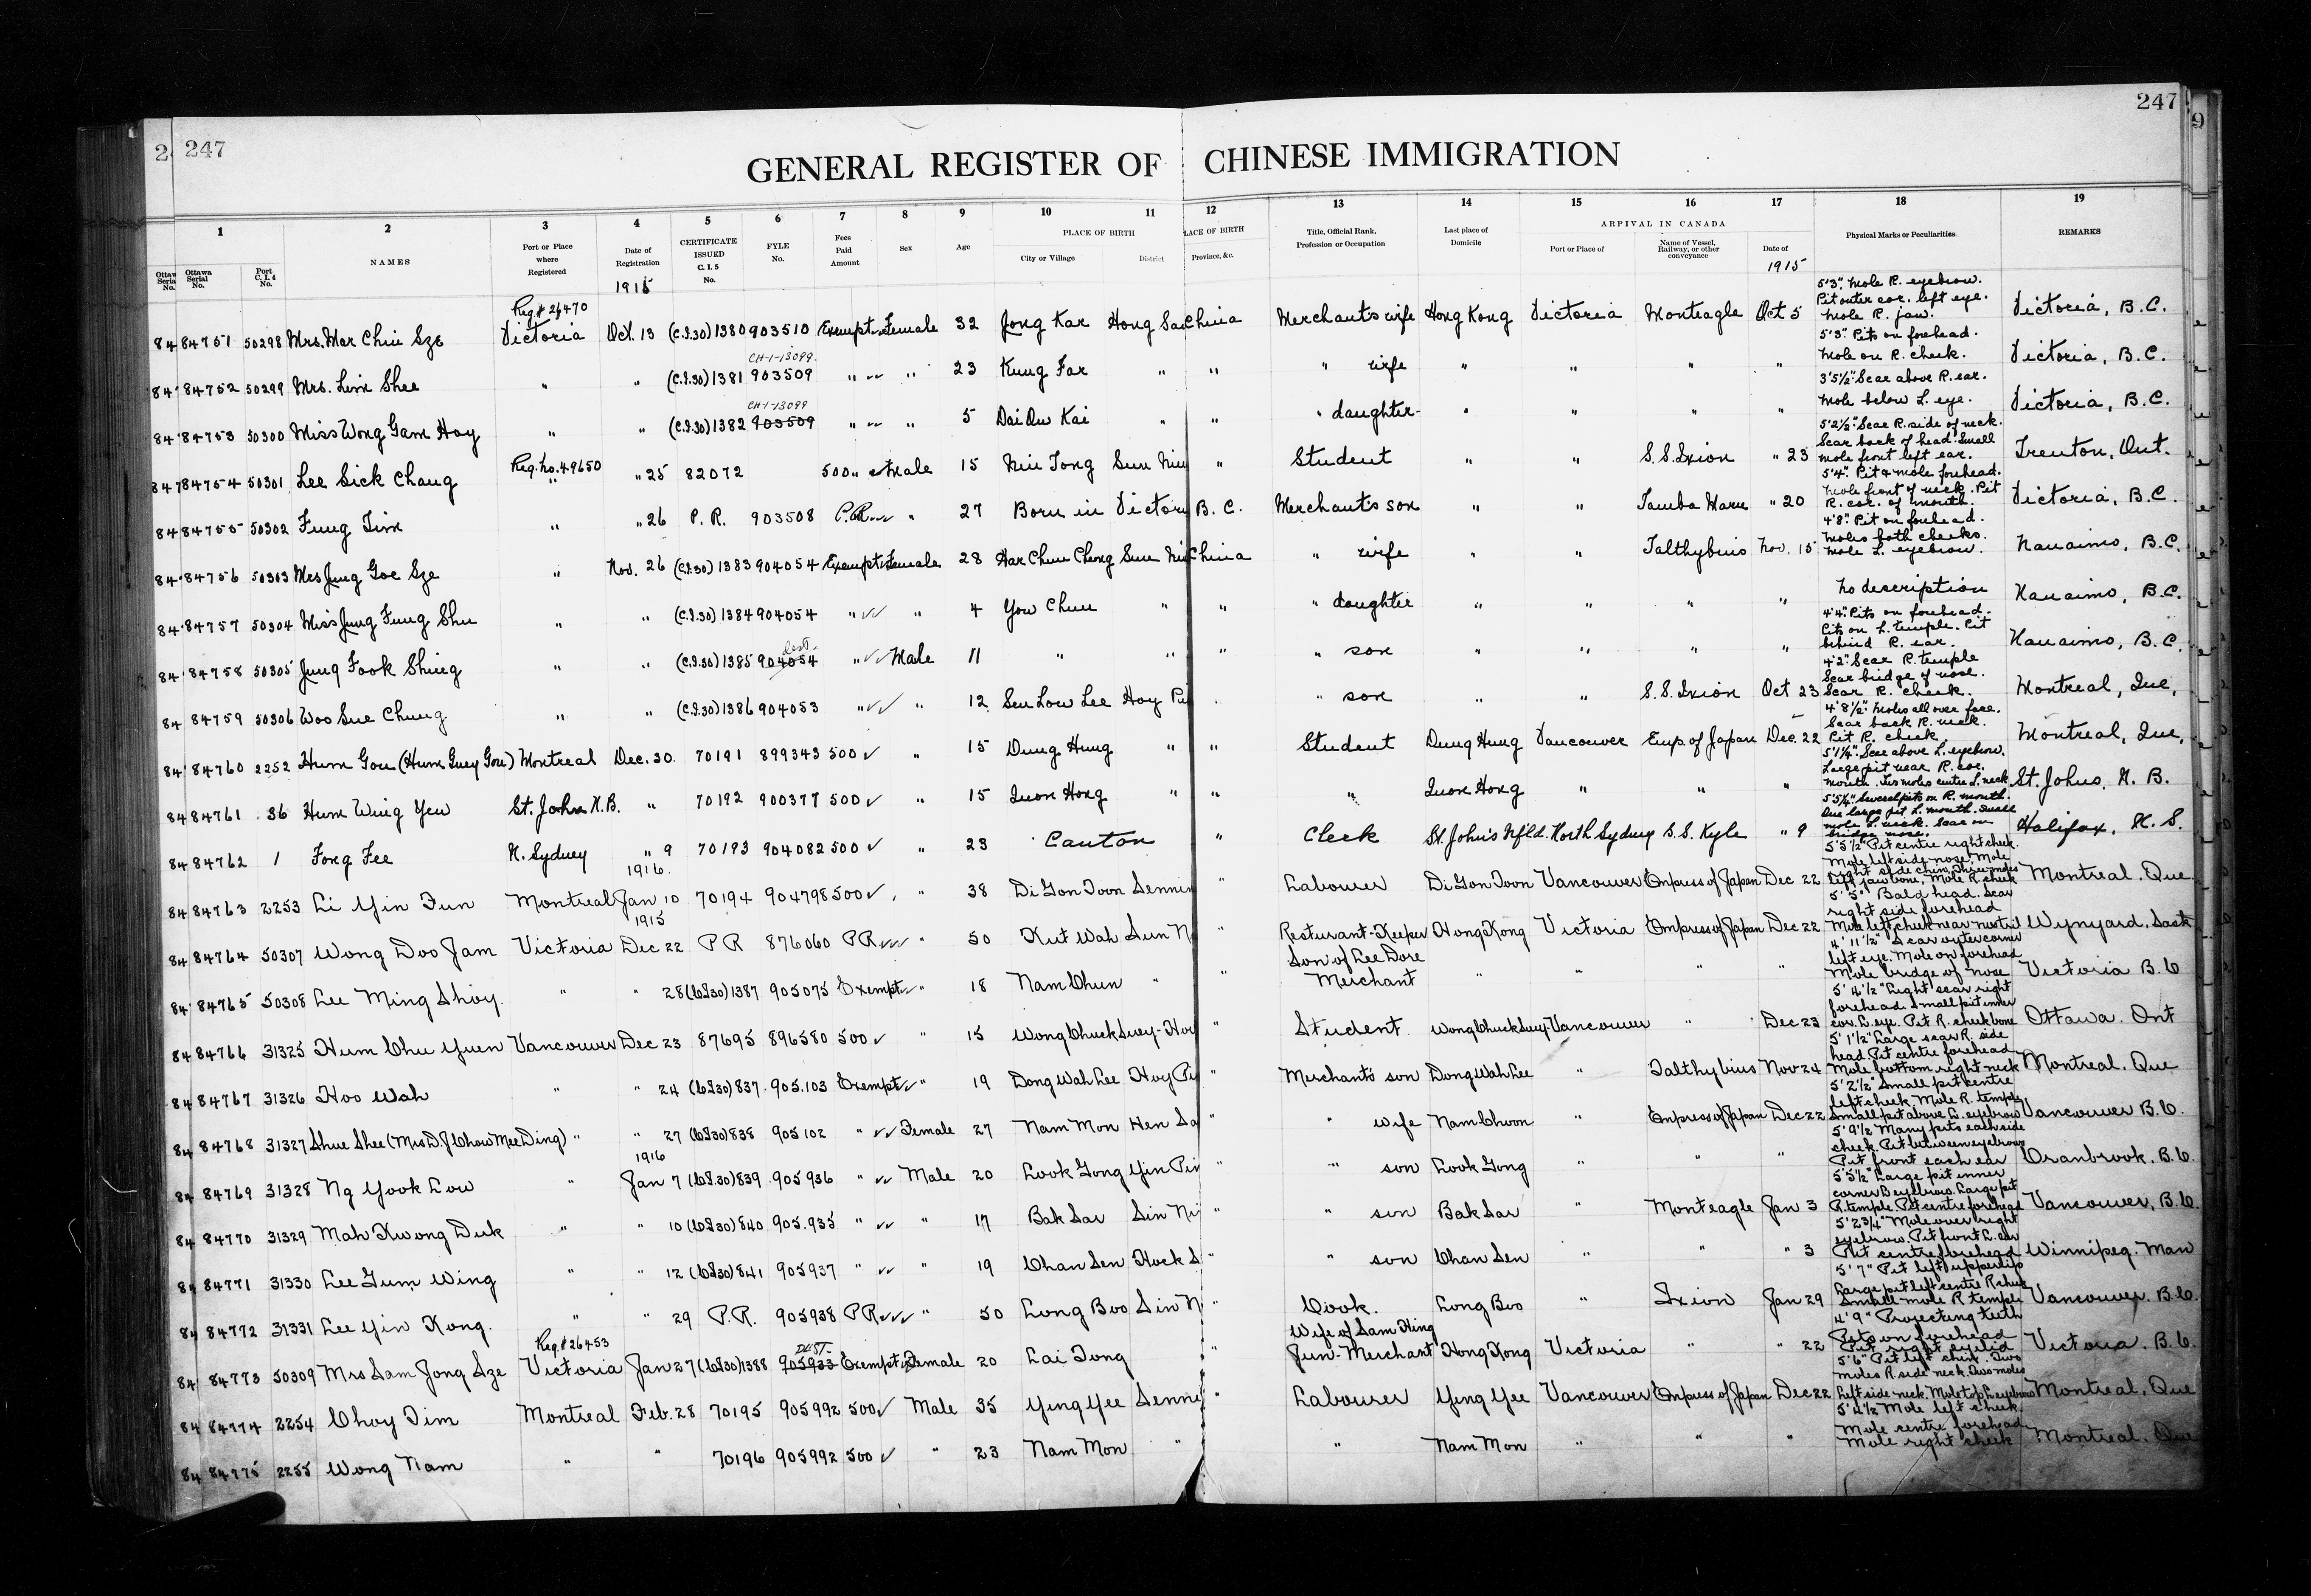 247
247
GENERAL REGISTER OF CHINESE IMMIGRATION
1 2 3 4 5 6 7 8 9 10 11 12 13 14 15 16 17 18 19
Ottawa Serial No. Port C.I.4 No. NAMES Port or Place where Registered Date of Registration CERTIFICATE ISSUED C.I.5 No. FYLE No. Fees Paid Amount Sex Age PLACE OF BIRTH City or Village District PLACE OF BIRTH Province, &c. Title, Official Rank, Profession or Occupation Last place of Domicile ARRIVAL IN CANADA Port or Place of Name of Vessel, Railway, or other conveyance Date of Physical Marks or Peculiarities REMARKS
1915 1915
Reg.# 26470
84751 50298 Mrs. Mar Chin Sze Victoria Oct. 13 (C.I.30) 1380 903510 Exempt Female 32 Jong Kar Hong San China Merchant's wife Hong Kong Victoria Monteagle Oct 5 5'3". Mole R. eyebrow. Pit outer cor. left eye. Mole R. jaw. Victoria, B.C.
CH-1-13099.
84752 50299 Mrs. Lim Shee " " (C.I.30) 1381 903509 " " 23 Kung Far " " " wife " " " " 5'3". Pits on forehead. Mole on R. cheek. Victoria, B.C.
CH-1-13099
84753 50300 Miss Wong Gam Hoy " " (C.I.30) 1382 903509 " " 5 Dai Du Kai " " " daughter " " " " 3'5½". Scar above R. ear. Mole below L. eye. Victoria, B.C.
Reg. No. 49650
84754 50301 Lee Sick Chang " " 25 82072 500 Male 15 Niu Tong Sun Nin " Student " " S.S. Ixion " 23 5'2½". Scar R. side of neck. Scar back of head. Small mole front left ear. Trenton, Ont.
84755 50302 Fung Tim " " 26 P.R. 903508 P.R. " 27 Born in Victoria B.C. Merchant's son " " Tamba Maru " 20 5'4". Pit & mole forehead. Mole front of neck. Pit R. cor. of mouth. Victoria, B.C.
84756 50303 Mrs Jung Goe Sze " Nov. 26 (C.I.30) 1383 904054 Exempt Female 28 Har Chun Cheng Sun Nin China " wife " " Talthybius Nov. 15 4'8". Pit on forehead. Moles both cheeks. Mole L. eyebrow. Nanaimo, B.C.
84757 50304 Miss Jung Fung Shu " " (C.I.30) 1384 904054 " " 4 You Chun " " " daughter " " " " No description Nanaimo, B.C.
dest.
84758 50305 Jung Fook Shing " " (C.I.30) 1385 904054 " Male 11 " " " " son " " " " 4'4". Pits on forehead. Pits on L. temple. Pit behind R. ear. Nanaimo, B.C.
84759 50306 Woo Sue Chung " " (C.I.30) 1386 904053 " " 12 Sen Low Lee Hoy Pin " son " " S.S. Ixion Oct 23 4'2". Scar R. temple Scar bridge of nose. Scar R. cheek. Montreal, Que,
84760 2252 Hum Gou (Hum Guey Gou) Montreal Dec. 30. 70191 899343 500 " 15 Dung Hung " " Student Dung Hung Vancouver Emp. of Japan Dec. 22 4'8½". Moles all over face. Scar back R. neck. Pit R. cheek. Montreal, Que,
84761 36 Hum Wing Yew St. John N.B. " 70192 900377 500 " 15 Quon Hong " " " Quon Hong " " " 5'1¼". Scar above L. eyebrow. Large pit near R. cor. mouth. Two moles centre L. neck. St. Johns, N.B.
84762 1 Fong Fee N. Sydney " 9 70193 904082 500 " 23 Canton " Clerk St. John's Nfld. North Sydney S.S. Kyle " 9 5'5¼". Several pits on R. mouth. One large pit L. mouth. Small mole L. neck. Scar on bridge nose. Halifax, N.S.
1916.
84763 2253 Li Yin Fun Montreal Jan 10 70194 904798 500 " 38 Di Gon Toon Sennin " Labourer Di Gon Toon Vancouver Empress of Japan Dec 22 5'5½" Pit centre right cheek. Mole left side nose. Mole right side chin. Three moles left jaw bone. Mole R. cheek Montreal. Que
1915
84764 50307 Wong Doo Jam Victoria Dec 22 P R 876060 PR " 50 Kut Wah Sun N " Resturant-Keeper Hong Kong Victoria Empress of Japan Dec 22 5'5" Bald head. Scar right side forehead Mole left cheek near nostril Wynyard. Sask
84765 50308 Lee Ming Shoy. " " 28 (C.I.30) 1387 905075 Exempt " 18 Nam Chun " " Son of Lee Dore Merchant " " " " 4'11½" Scar outer corner left eye. Mole on forehead Mole bridge of nose Victoria B.C
84766 31325 Hum Chu Yuen Vancouver Dec 23 87695 896580 500 " 15 Wong Chuck Suey-Hoy " Student Wong Chuck Suey-Vancouver " Dec 23 5'4½" Light scar right forehead. Small pit inner cor. L. eye. Pit R. cheekbone Ottawa. Ont
84767 31326 Hoo Wah " " 24 (C.I.30) 837 905.103 Exempt " 19 Dong Wah Lee Hoy Pin " Merchants son Dong Wah Lee " Talthybius Nov 24 5'1½" Large scar R. side head. Pit centre forehead Mole bottom right neck Montreal. Que
84768 31327 Shue Shee (Mrs D.J. Chow Mee Ding) " " 27 (C.I.30) 838 905102 " Female 27 Nam Mon Hen Sa " " wife Nam Choon " Empress of Japan Dec 22 5'2½" Small pit centre left cheek. Mole R. temple Small pit above L. eyebrow Vancouver B.C.
1916
84769 31328 Ng Yook Low " Jan 7 (C.I.30) 839 905936 " Male 20 Look Gong Yin Pin " " son Look Gong " " " 5'9½ Many pits each side cheek. Pit between eyebrows Pit front each ear Cranbrook. B.C.
84770 31329 Mah Kwong Duk " " 10 (C.I.30) 840 905.935 " " 17 Bak Sar Sin Ni " " son Bak Sar " Monteagle Jan 3 5'5½" Large pit inner corner L eyebrow. Large pit R. temple. Pit centre forehead Vancouver, B.C.
84771 31330 Lee Gum Wing " " 12 (C.I.30) 841 905937 " " 19 Chan Sen Hock S " " son Chan Sen " " " 3 5'2¾" Mole over right eyebrow. Pit front L. ear Pit centre forehead Winnipeg. Man
84772 31331 Lee Yin Kong. " " 29 P.R. 905938 PR " 50 Long Boo Sin N " Cook. Long Boo " Ixion Jan 29 5'7" Pit left upper lip Large pit left centre R cheek Small mole R temple Vancouver. B.C.
Reg.# 26453
DEST.
84773 50309 Mrs Sam Jong Sze Victoria Jan 27 (C.I.30) 1388 905933 Exempt Female 20 Lai Tong " Wife of Sam Hing Jun-Merchant Hong Kong Victoria " " 22 4'9" Projecting teeth Pits on forehead Pit right eyelid Victoria. B.C.
84774 2254 Choy Tim Montreal Feb. 28 70195 905992 500 Male 35 Ying Yee Senni " Labourer Ying Yee Vancouver Empress of Japan Dec 22 5'6" Pit left chin. Two moles R. side neck. Two moles Left side neck. Mole top L eyebrow Montreal, Que
84775 2255 Wong Nam " " 70196 905992 500 " 23 Nam Mon " " Nam Mon " " " 5'4½ Mole left cheek. Mole centre forehead Mole right cheek Montreal. Que